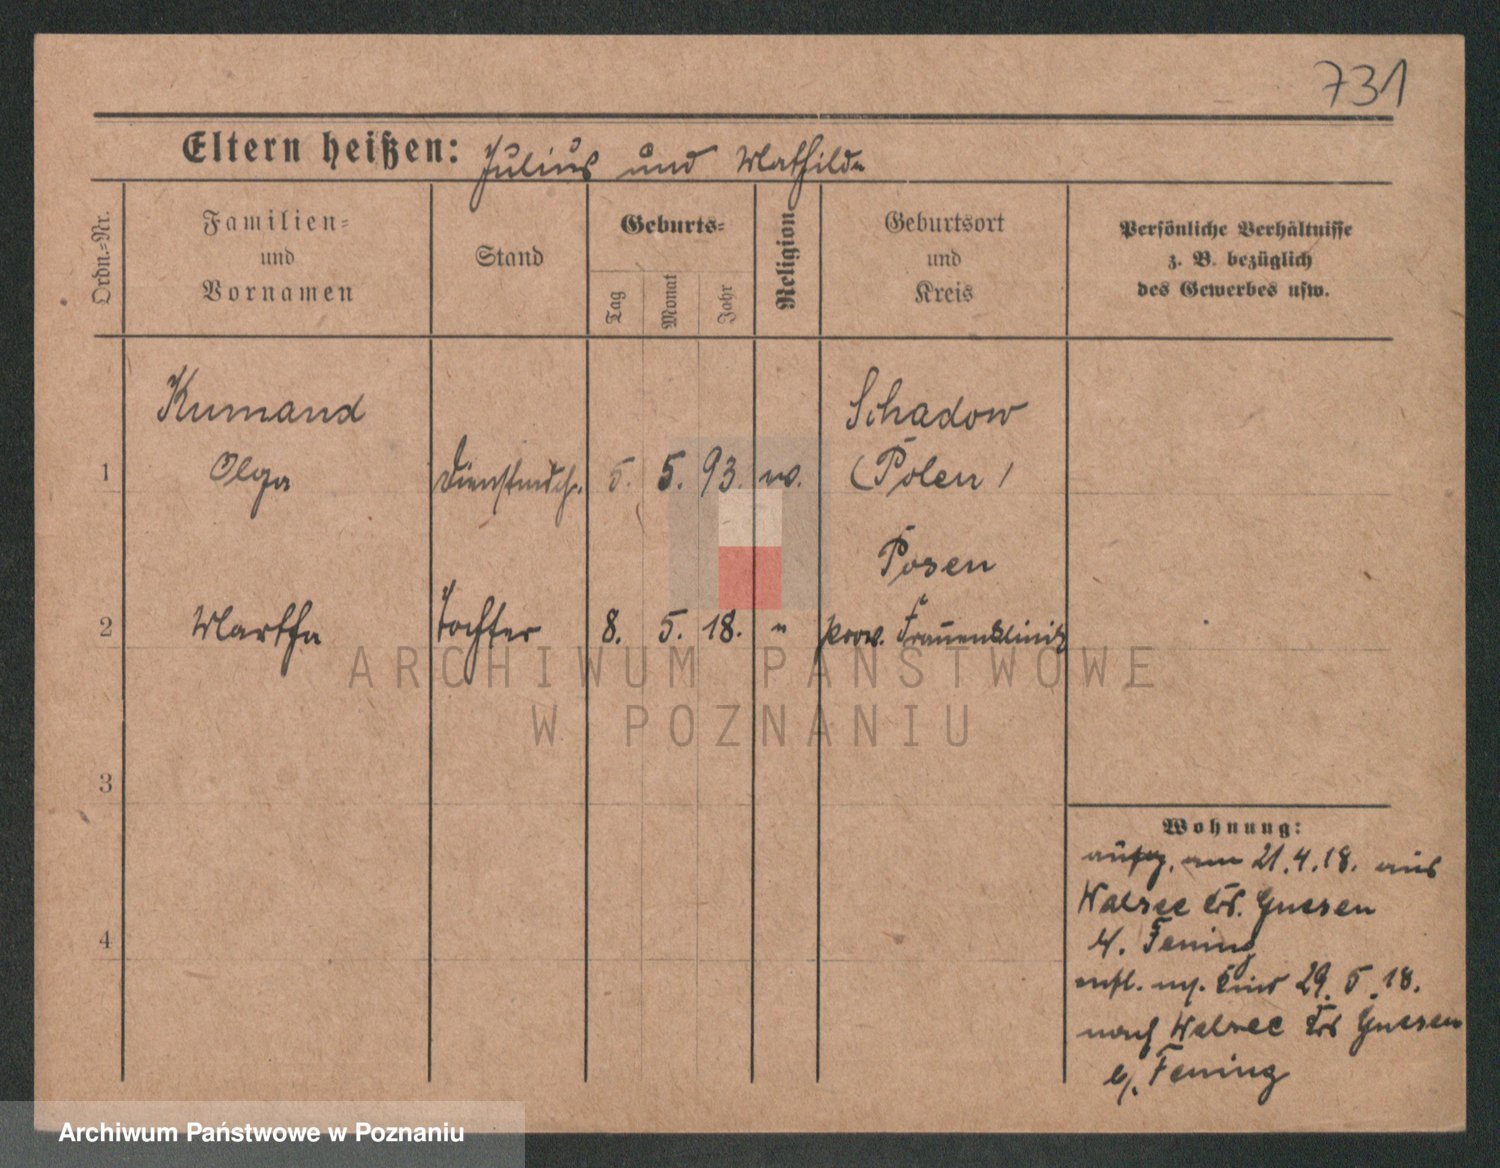 731
Eltern heißen: Julius und Mathilde
Ordn.-Nr.
Familien-
und
Vornamen
Stand
Geburts-
Tag
Monat
Jahr
Religion
Geburtsort
und
Kreis
Persönliche Verhältnisse
z. B. bezüglich
des Gewerbes usw.
Kumand
Schadow
1 Olga Dienstmdch. 5. 5. 93. w. (Polen)
Posen
2 Martha Tochter 8. 5. 18. " prov. Frauenklinik
ARCHIWUM PAŃSTWOWE
W POZNANIU
3
4
Wohnung:
am 21.4.18. aus
Walsee Krs. Gnesen
b/. Fening
entl. m/. Kind 29. 5. 18.
nach Walsee Krs Gnesen
b/. Fening
Archiwum Państwowe w Poznaniu